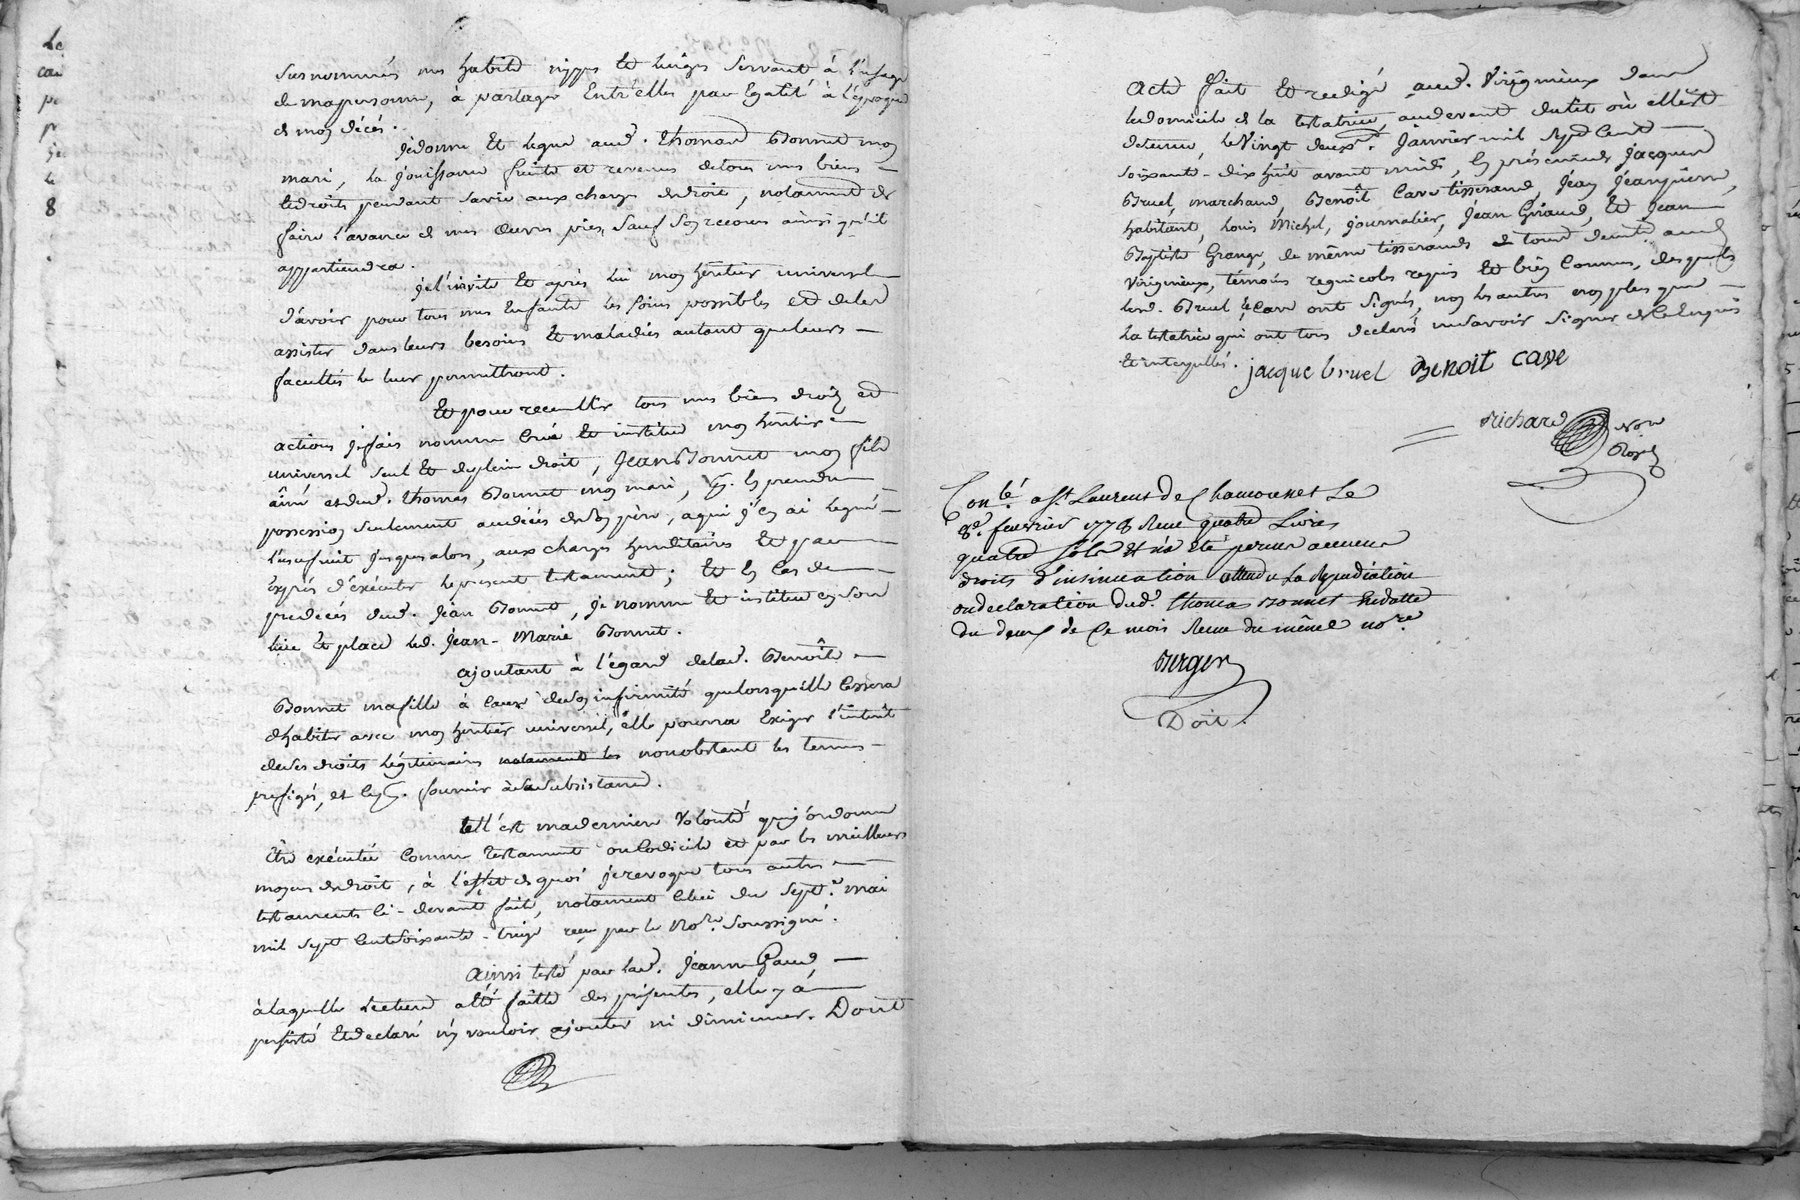 Le
cai
pe
p
je
le
8
susnommés mes habits nippes et linges servant à l'usage
de ma personne, à partager Entr'elles par Egalité à l'époque
de mon décès.
Je donne et legue aud. thomas Bonnet mon
mari, la jouissance fruits et revenus de tous mes biens
et droits pendant sa vie aux charges de droit, notament de
faire l'avance de mes Œuvres pies, sauf son recours ainsi qu'il
appartiendra.
je l'invite et après lui mon héritier universel
d'avoir pour tous mes Enfants les soins possibles et de les
assister dans leurs besoins et maladies autant que leurs
facultés le leur permettront.
Et pour recueillir tous mes biens droits et
actions je fais nomme Crée et institue mon héritier
universel seul et de plein droit, Jean Bonnet mon fils
aîné et dud. thomas Bonnet mon mari, pr. en prendre
possession seulement au décès de son père, a qui j'en ai legué
l'usufruit jusques alors, aux charges hereditaires et par
exprès d'exécuter le present testament; et En Cas de
predécès dud. Jean Bonnet, je nomme et institue en son
lieu et place led. Jean-Marie Bonnet.
ajoutant à l'égard de lad. Benoîte
Bonnet ma fille à cause de son infirmité que lorsqu'elle Cessera
d'habiter avec mon héritier universel, elle pourra Exiger l'interêt
de ses droits légitimaires notament les nonobstant les termes
prefigés, et ce pr. fournir à sa subsistance.
tell'est ma derniere Volonté que j'ordonne
être exécutée Comme testament ou Codicile et par les meilleurs
moyens de droit, à l'effet de quoi je revoque tous autres
testaments Ci-devant faits, notament Celui du sept.e mai
mil sept Cent soixante-treize reçu par le No.re soussigné.
Ainsi testé par lad. Jeanne Gaud,
à laquelle lecture a été faitte des présentes, elle y a
persisté Et declaré n'y vouloir ajouter ni diminuer. Dont
Acte fait et redigé aud. Virigneux dans
le domicile de la testatrice au devant du lit où ell'est
detenue, le Vingt deux.e Janvier mil sept Cent
soixante-dix huit avant midi, En présence de Jacques
Bruel, marchand, Benoît Cave tisserand, Jean Jeanpierre,
habitant, Louis Michel, journalier, Jean Giraud, et Jean
Baptiste Grange, de même tisserands de tous dud.
Virigneux, témoins regnicoles requis et bien Connus, desquels
lesd. Bruel et Cave ont signés, non les autres non plus que
la testatrice qui ont tous declaré ne savoir signer de Ce Enquis
Et interpellés. jacque bruel BENOIT CAVE
Richard No.re
Royal
Con.lé a St Laurent de Chamousset Le
8.e feuvrier 1778 Reçu quatre Livres
quatre sols et n'a été perçu aucuns
droits d'insinuation attendu La Repudiation
ou declaration dud.t thomas Bonnet En datte
du deux de Ce mois Reçue du même no.re
Berger
Doit.